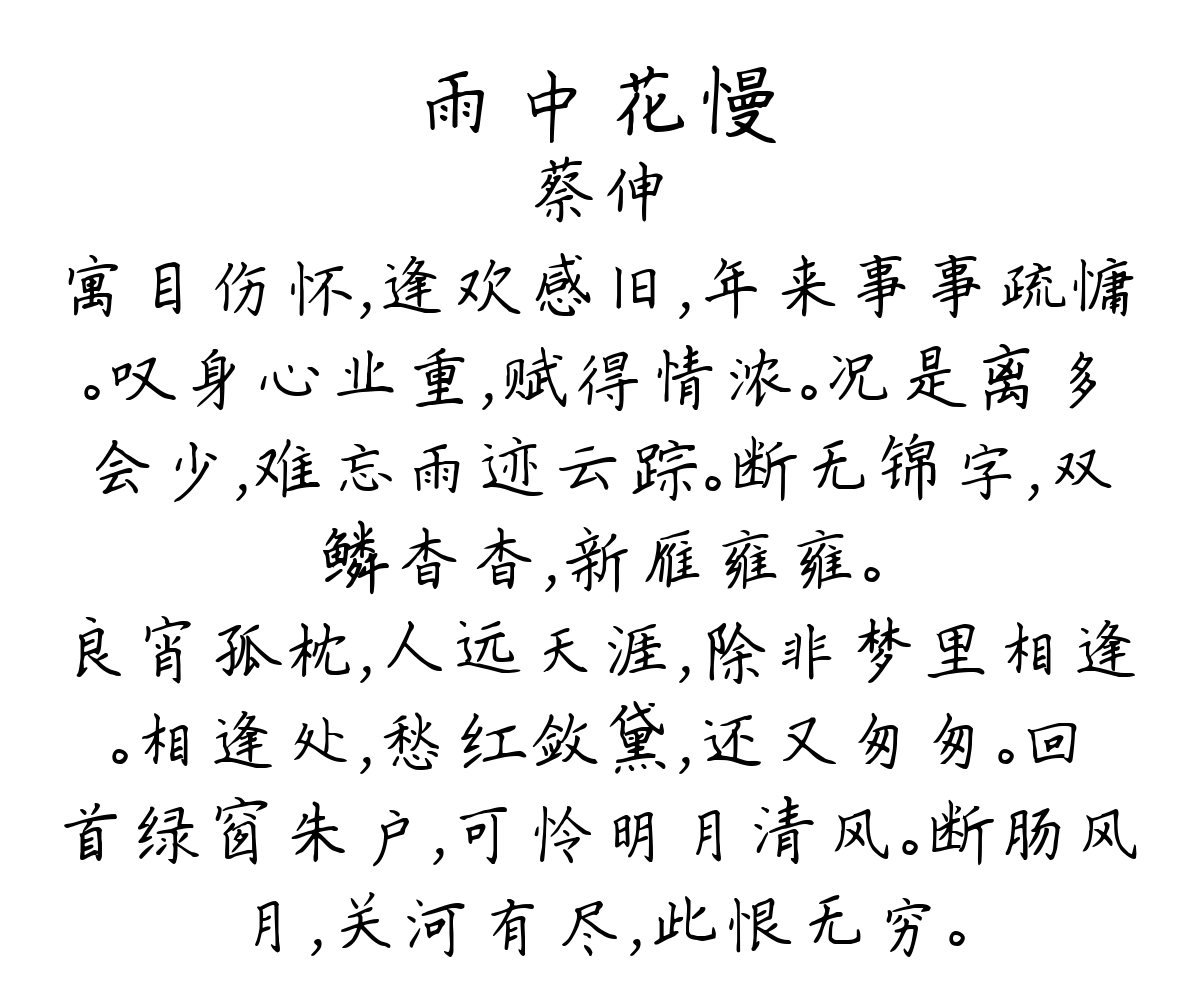 雨中花慢
蔡伸
寓目伤怀,逢欢感旧,年来事事疏慵
。叹身心业重,赋得情浓。况是离多
会少,难忘雨迹云踪。断无锦字,双
鳞杳杳,新雁雍雍。
良宵孤枕,人远天涯,除非梦里相逢
。相逢处,愁红敛黛,还又匆匆。回
首绿窗朱户,可怜明月清风。断肠风
月,关河有尽,此恨无穷。